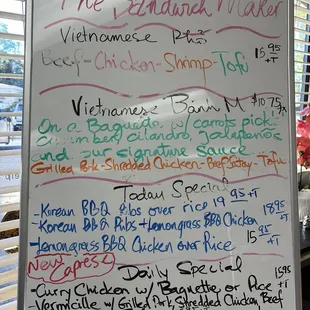 The Sandwich Maker
Vietnamese Phở 15.95 +T
Beef-Chicken-Shrimp-Tofu
Vietnamese Bánh Mì $10.75
On a Baguette w/ carrots, pickl
cucumber, cilandro, jalapenos
and our signature sauce
Grilled Pork-Shredded Chicken-Beef Satay-Tofu
Today Special
-Korean BBQ Ribs over rice 19.95+T
-Korean BBQ Ribs + Lemongrass BBQ Chicken 18.95 +T
-Lemongrass BBQ Chicken over Rice 15.95 +T
New Capres
Daily Special
-Curry Chicken w/ Baguette or Rice 15.95 +T
-Vermicille w/ Grilled Pork, Shredded Chicken, Beef